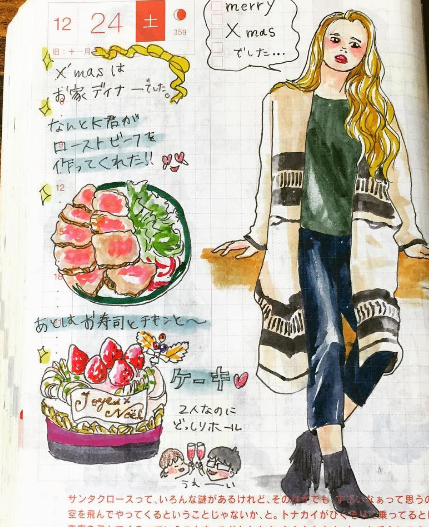 12 24 土
359
旧:十一月
merry
Xmas
でした…
X'masは
お家ディナーでした。
なんとK君が
ローストビーフを
作ってくれた!!
12
あとは お寿司とチキンと〜
ケーキ
Joyeux
Noël
2人なのに
どっしりホール
うぇーい
サンタクロースって、いろんな謎があるけれど、その
なぁって思うの
空を飛んでやってくるということじゃないか、と。トナカイがひ
乗ってるとに